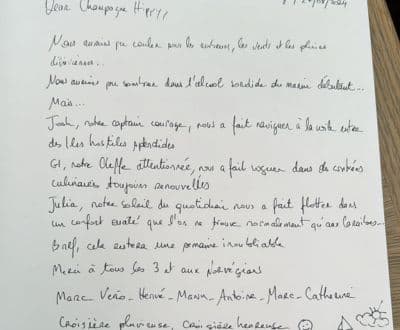 Dear Champagne Hippy,
/08/2024
Nous aurions pu couler sous les, les vents et les pluies
diluviennes...
Nous aurions pu sombrer dans l'alcool sordide du marin débutant...
Mais...
Josh, notre captain courage, nous a fait naviguer à la voile entre
des îles hostiles splendides
GI, notre Cheffe attentionnée, nous a fait voguer dans des contrées
culinaires toujours renouvelées
Julia, notre soleil du quotidien nous a fait flotter dans
un confort ouaté que l'on ne trouve normalement qu'aux Caraïbes...
Bref, cela restera une semaine inoubliable
Merci à tous les 3 et aux Norvégiens
Marc - Hervé - Manu - Antoine - Marc - Catherine
Croisière pluvieuse, Croisière heureuse